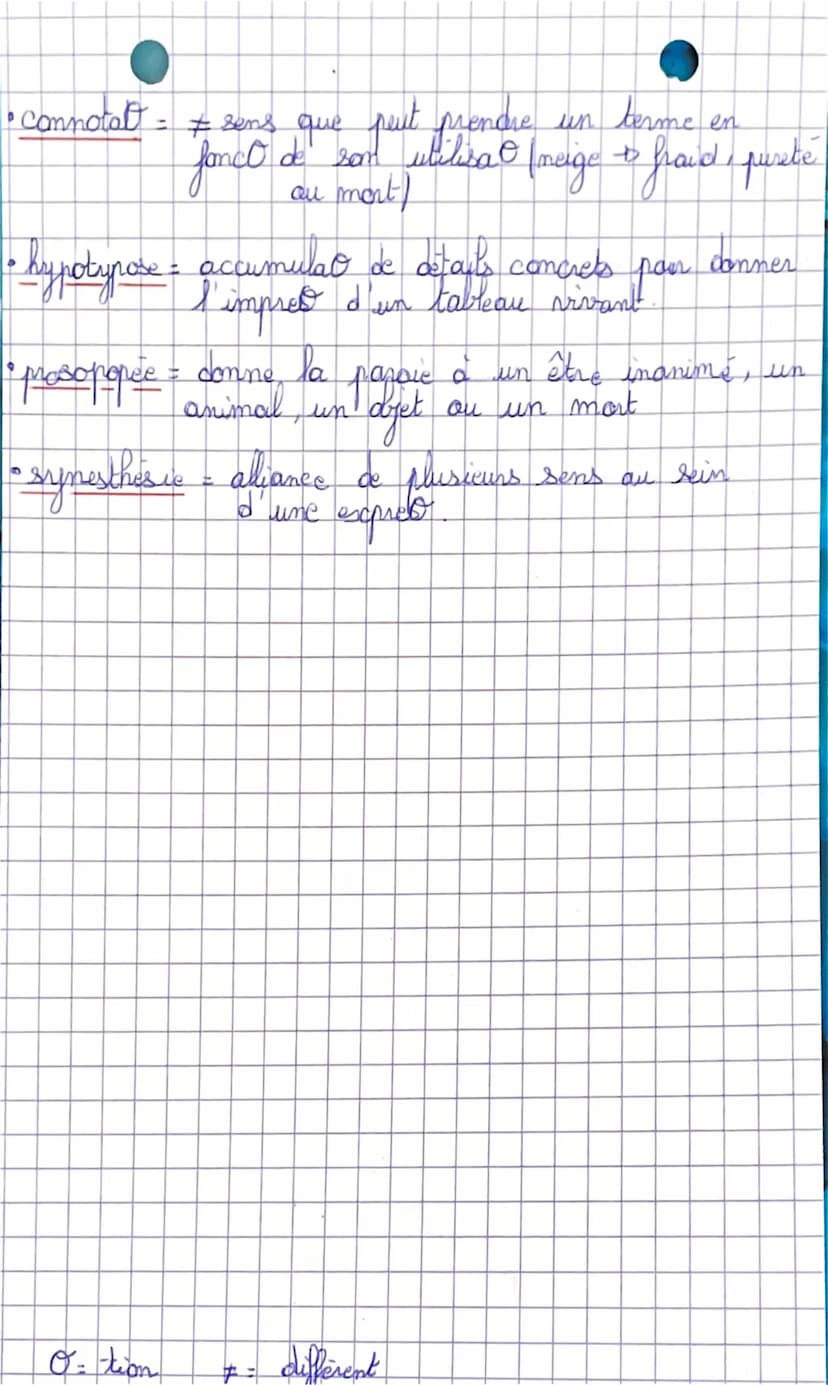 • connotaθ = ≠ sens que peut prendre un terme en
foncθ de son utilisaθ (neige → froid, pureté
ou mort)
• hypotypose = accumulaθ de détails concrets pour donner
l'impresθ d'un tableau vivant.
• prosopopée = donne la parole à un être inanimé, un
animal, un objet ou un mort
• synesthésie = alliance de plusieurs sens au sein
d'une expresθ.
θ = tion ≠ = différent